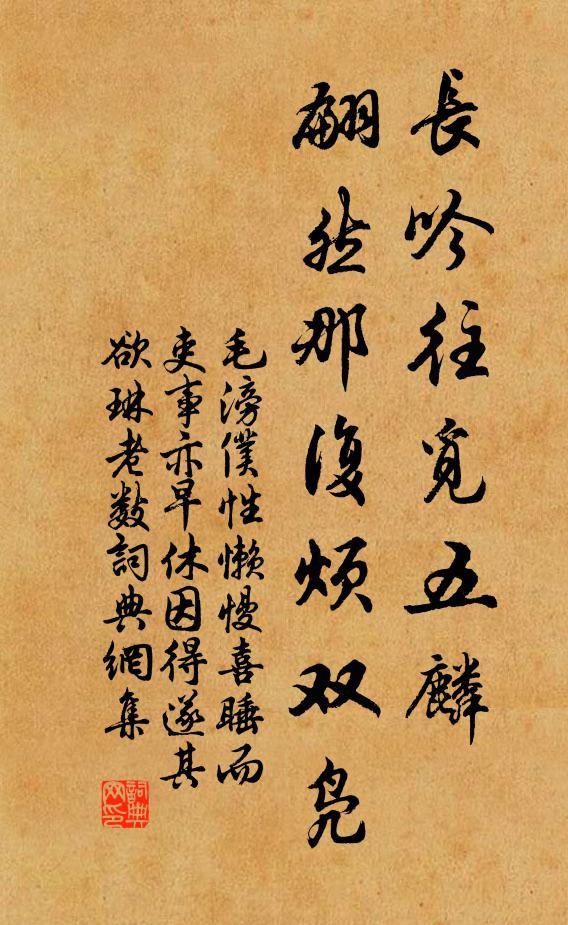 長吟往覓五麟
翩然那復煩双鳧
毛滂僕性懶慢喜睡而
吏事亦早休因得遂其
欲琳老數詞典網集
詞典
网印